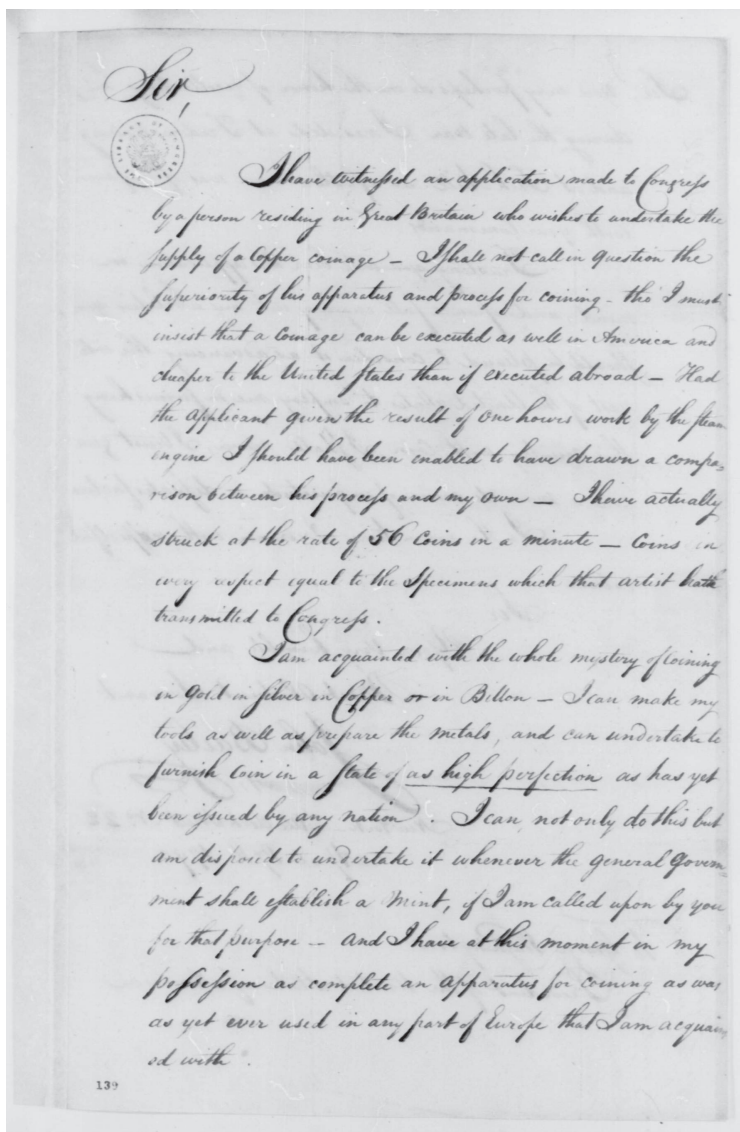 Sir,
THE LIBRARY OF CONGRESS
I have witnessed an application made to Congress
by a person residing in Great Britain who wishes to undertake the
supply of a Copper coinage – I shall not call in question the
superiority of his apparatus and process for coining – tho' I must
insist that a Coinage can be executed as well in America and
cheaper to the United States than if executed abroad – Had
the applicant given the result of one hours work by the steam
engine I should have been enabled to have drawn a compa=
rison between his process and my own – I have actually
struck at the rate of 56 Coins in a minute – Coins in
every respect equal to the Specimens which that artist hath
transmitted to Congress.
I am acquainted with the whole mystery of Coining
in Gold in Silver in Copper or in Billon – I can make my
tools as well as prepare the metals, and can undertake to
furnish Coin in a State of as high perfection as has yet
been issued by any nation. I can not only do this but
am disposed to undertake it whenever the general Govern=
ment shall establish a Mint, if I am called upon by you
for that purpose – and I have at this moment in my
possession as complete an apparatus for coining as was
as yet ever used in any part of Europe that I am acquain
ed with.
139